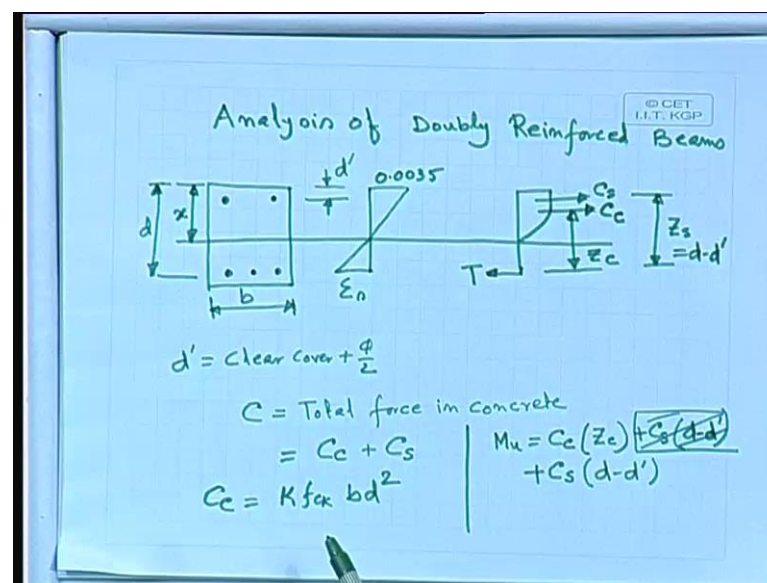 © CET
I.I.T. KGP
Analysis of Doubly Reinforced Beams
d'
0.0035
Cs
Cc
x
d
Zs
=d-d'
Zc
T
b
εs
d' = Clear Cover + φ/2
C = Total force in concrete
= Cc + Cs
Cc = K fck bd²
Mu = Cc (Zc) +Cs(d-d')
+ Cs (d-d')